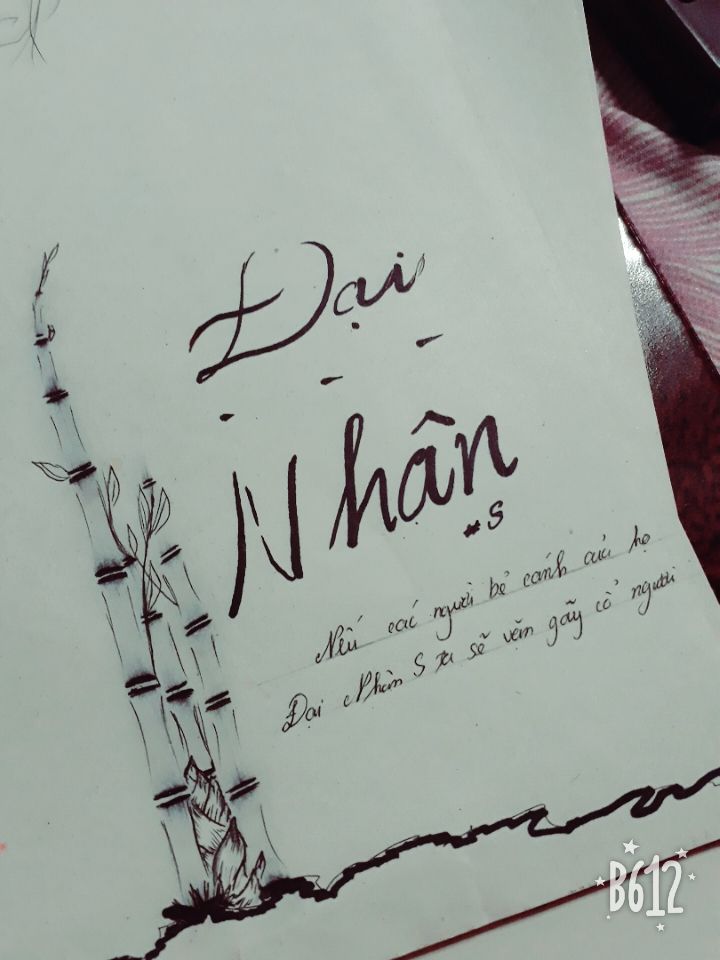 Đại
Nhận
#S
Nếu các người bẻ cánh của họ
Đại Nhân S ta sẽ vặn gãy cổ người
B612